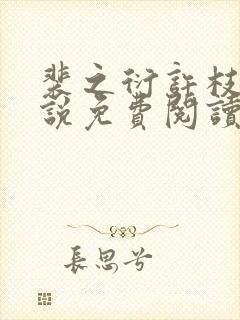 裴之衍許枝
說免費閱讀
長思兮